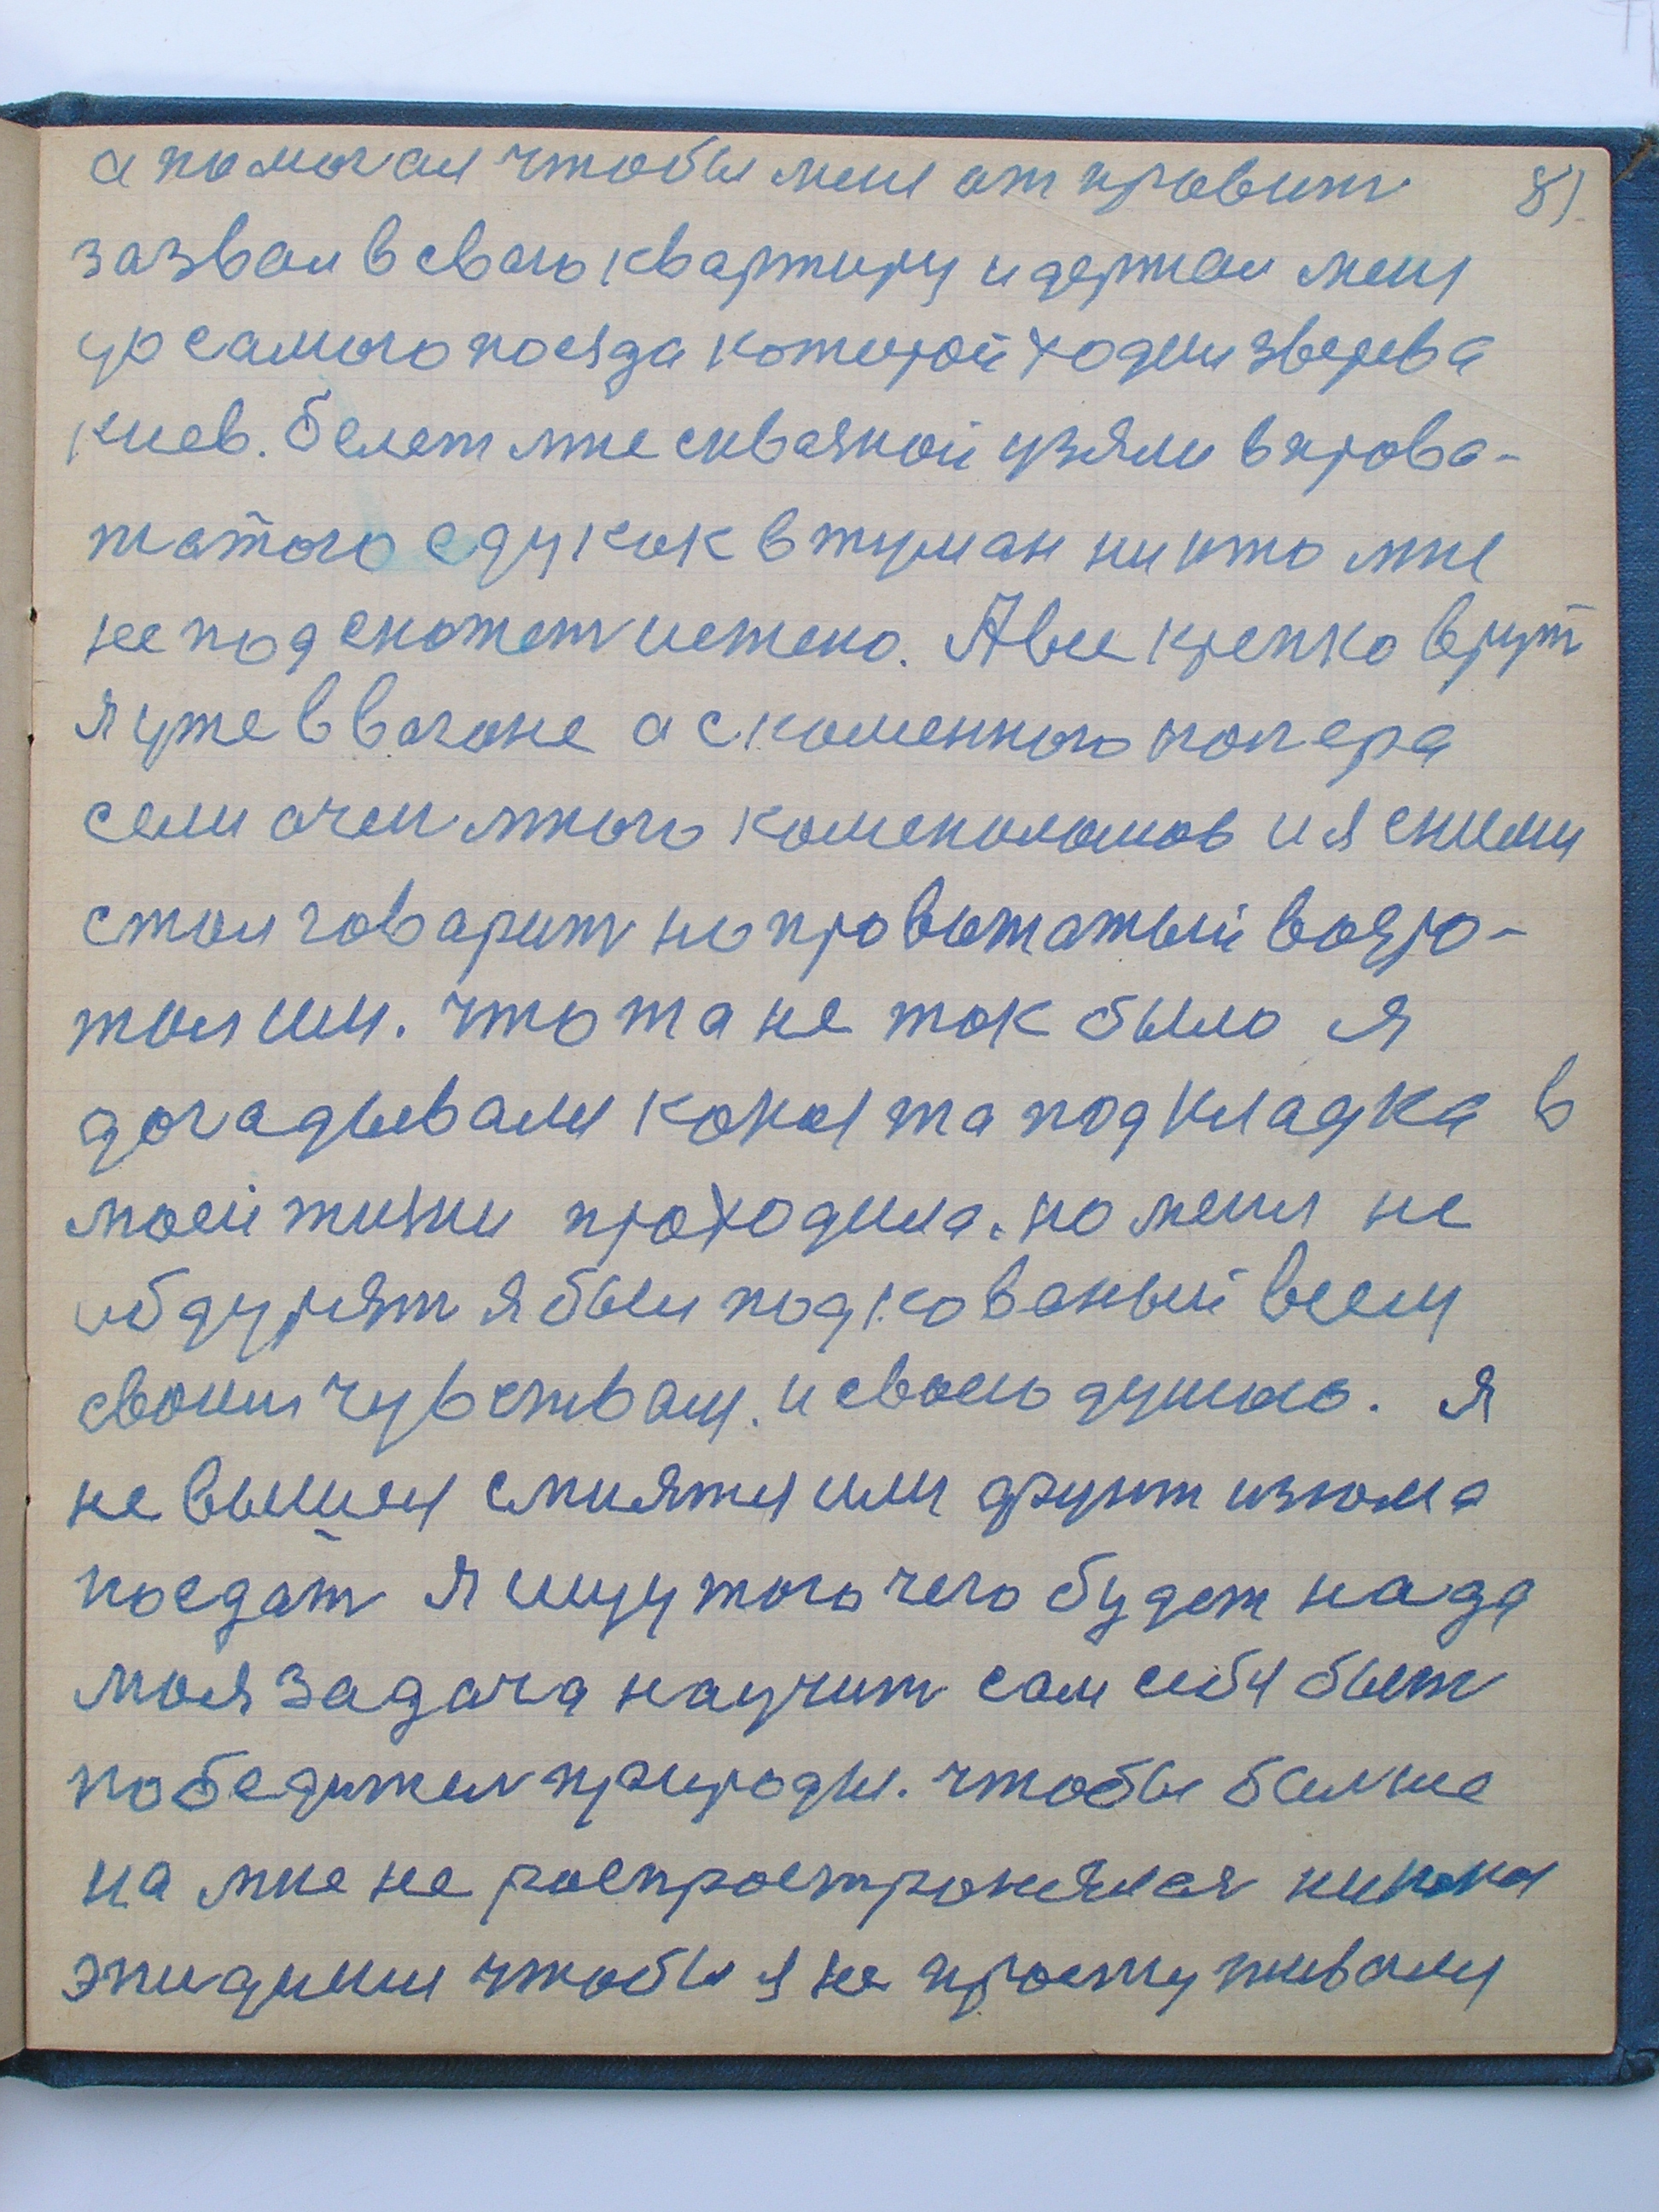 а помогал чтобы меня от правит 8).
зазвал в сваю квартиру и держал меня
до самого поезда которой ходил зверева
киев. белет мне сквазной узяли в права-
жатого еду как в туман ни кто мне
не под скажет истено. А вые крепко врут
я уже в вагоне а с каменного

сели очен много каменоломов и я сними
стал говарит но правожатый воззра-
жал им. что та не так было я
догадывался кокая та под кладка в
моей жизни праходила. но меня не
обдурят я был подкованый всему
своим чувствам. и сваею душою. я
не вышел смиятся или фрукт изюма
поедат я ищу того чего будет нада
моя задача научит сам себя быт
победител природы. чтобы болше
на мне не распространялася никакая
эпидимия чтобы я не простуживался